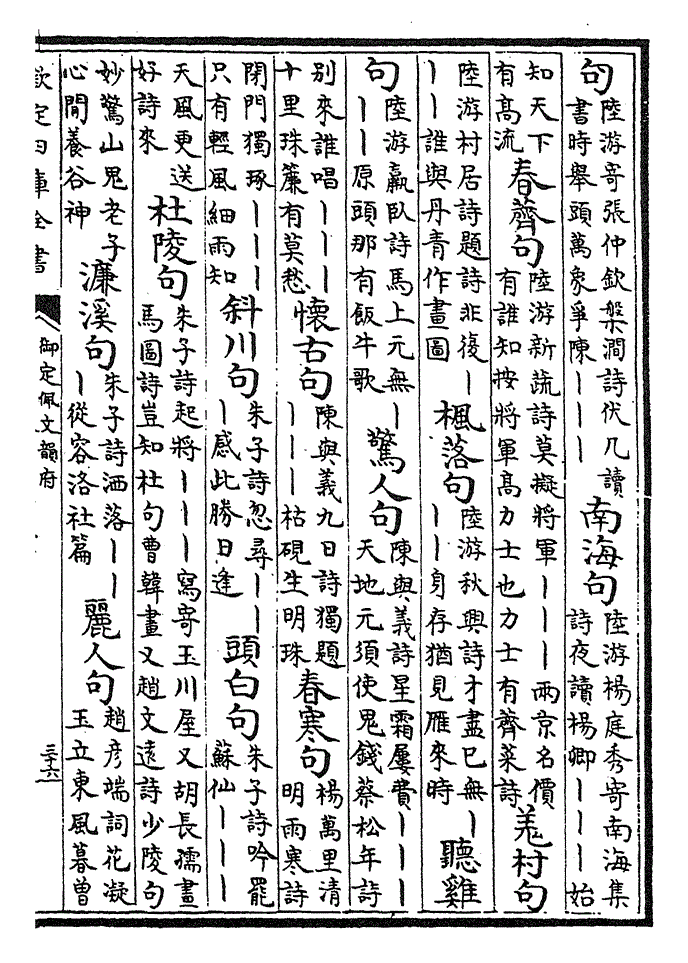 句陸游寄張仲欽槃澗詩伏几讀
書時舉頭萬象爭陳丨丨丨
南海句陸游楊庭秀寄南海集
詩夜讀楊卿丨丨丨始
知天下
有高流
春薺句陸游新蔬詩莫擬將軍丨丨丨兩京名價
有誰知按將軍高力士也力士有薺菜詩
羗村句
陸游村居詩題詩非復丨
丨丨誰與丹青作畫圖
楓落句陸游秋興詩才盡已無丨
丨丨身存猶見雁來時
聽雞
句陸游羸臥詩馬上元無丨
丨丨原頭那有飯牛歌
驚人句陳與義詩星霜屢費丨丨丨
天地元須使鬼錢蔡松年詩
別來誰唱丨丨丨
十里珠簾有莫愁
懷古句陳與義九日詩獨題
丨丨丨枯硯生明珠
春寒句楊萬里清
明雨寒詩
閉門獨琢丨丨丨
只有輕風細雨知
斜川句朱子詩忽尋丨丨
丨感此勝日逢
頭白句朱子詩吟罷
蘇仙丨丨丨
天風更送
好詩來
杜陵句朱子詩起將丨丨丨寫寄玉川屋又胡長孺畫
馬圖詩豈知杜句曹韓畫又趙文遠詩少陵句
妙驚山鬼老子
心閒養谷神
濂溪句朱子詩洒落丨丨
丨從容洛社篇
麗人句趙彥端詞花凝
玉立東風暮曽
欽定四庫全書
御定佩文韻府
三十六